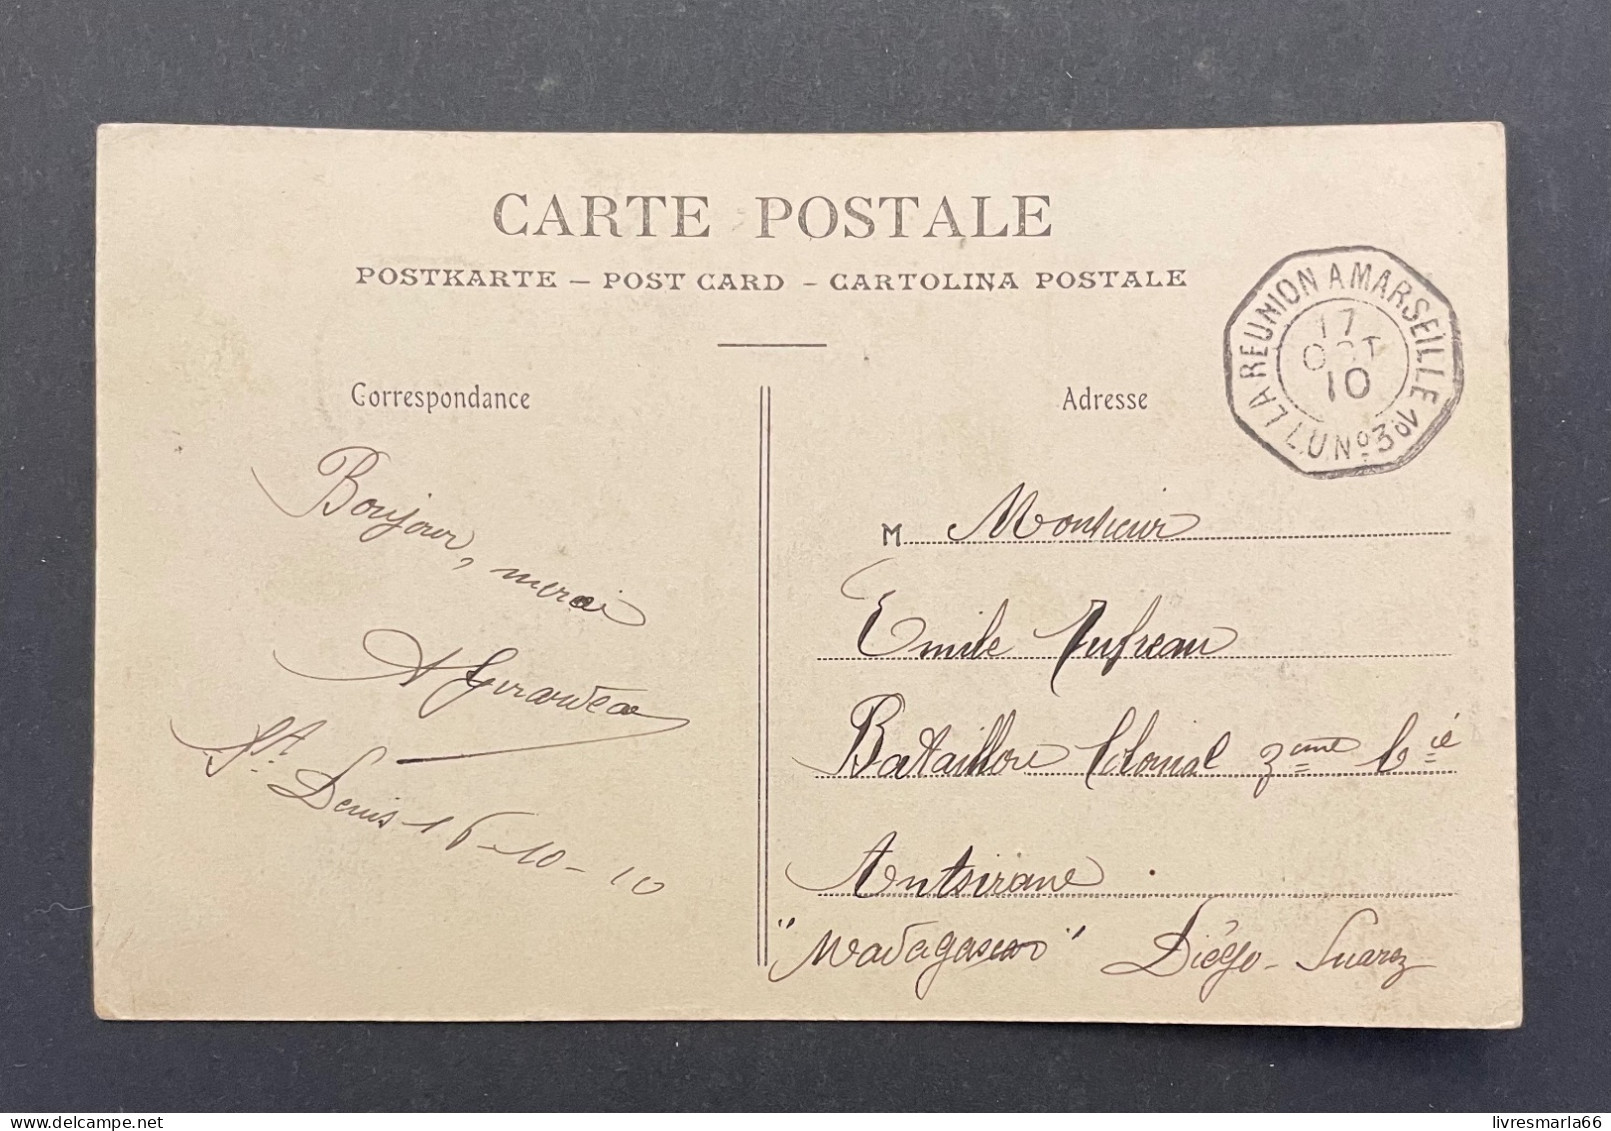 CARTE POSTALE
POSTKARTE — POST CARD – CARTOLINA POSTALE
LA REUNION A MARSEILLE
L.U.Nº3.
17
OCT
10
Correspondance
Bonjour, merci
A Girardeau
St. Denis 16-10-10
Adresse
M Monsieur
Emile
Bataillon Colonial 3eme Cie
Antsirane
"Madagascar" Diégo-Suarez
livresmarla66